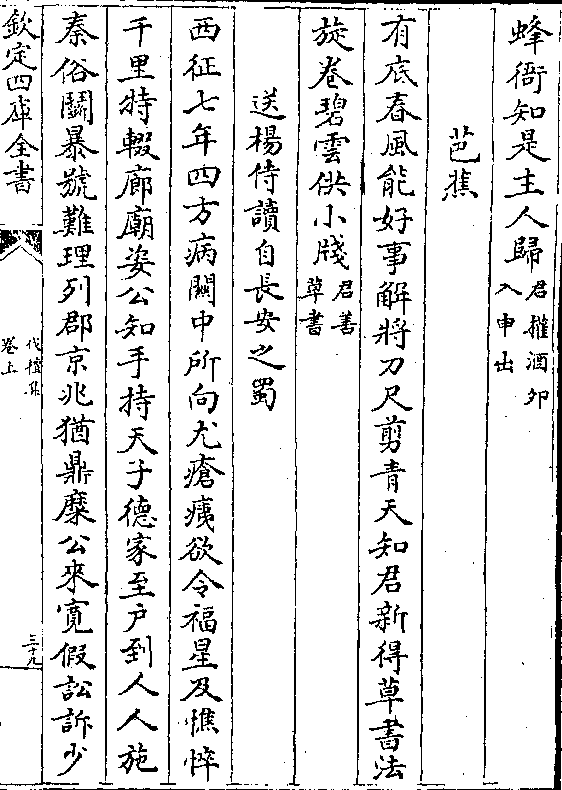 蜂衙知是主人歸君搉酒夘
入申出
芭蕉
有底春風能好事解將刀尺剪青天知君新得草書法
旋卷碧雲供小牋君善
草書
送楊侍讀自長安之蜀
西征七年四方病關中所向尤瘡痍欲令福星及憔悴
千里特輟廊廟姿公知手持天子德家至户到人人施
秦俗鬭暴號難理列郡京兆猶鼎糜公來寛假訟訴少
欽定四庫全書
伐檀集
卷上
三十九